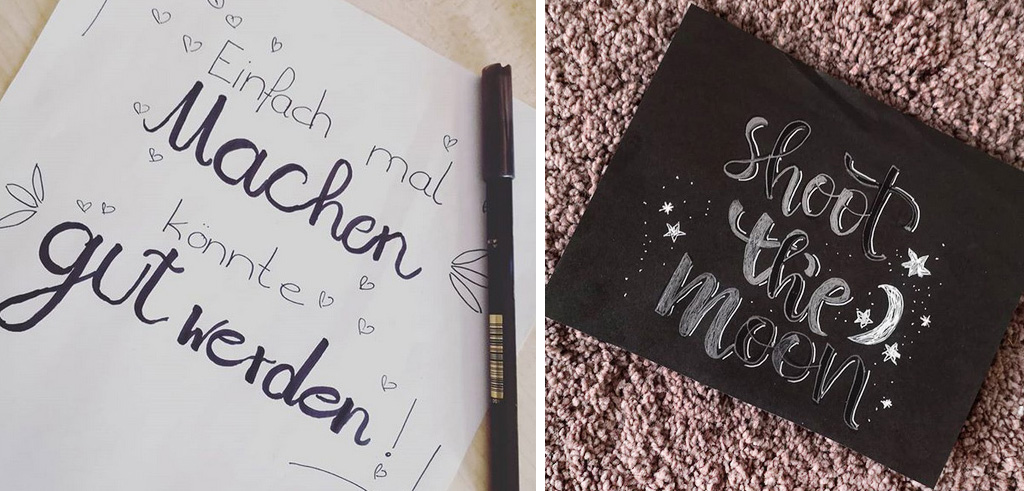 Einfach mal
Machen
könnte
gut werden!
shoot
the
moon